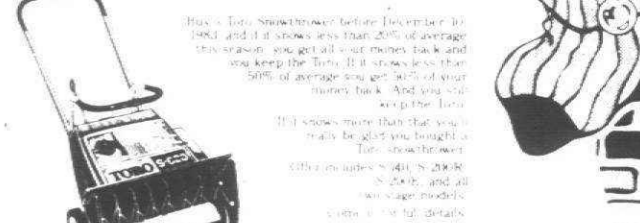 Buy a Toro Snowthrower before December 10,
1983 and if it snows less than 20% of average
this season, you get all your money back and
you keep the Toro. If it snows less than
50% of average you get 50% of your
money back. And you still
keep the Toro.
If it snows more than that you'll
really be glad you bought a
Toro snowthrower.
Offer includes S-200R
and all
two stage models.
details
TORO